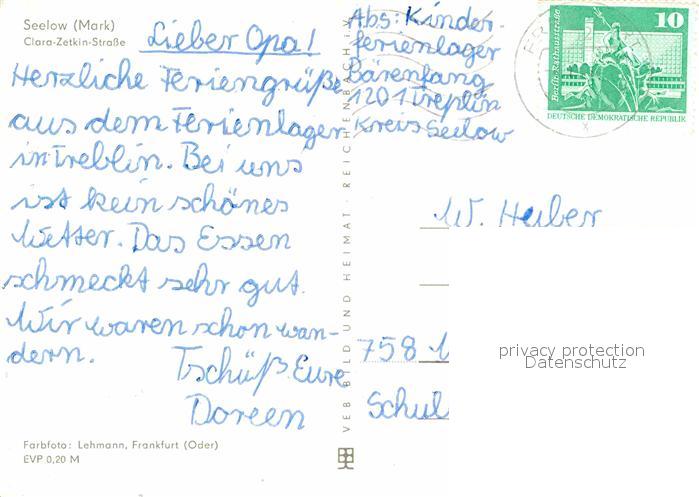 Seelow (Mark)
Clara-Zetkin-Straße
Lieber Opa!
Herzliche Feriengrüße
aus dem Ferienlager
in Treblin. Bei uns
ist kein schönes
Wetter. Das Essen
schmeckt sehr gut.
Wir waren schon wan-
dern.
Tschüß Eure
Doreen
Farbfoto: Lehmann, Frankfurt (Oder)
EVP 0,20 M
VEB BILD UND HEIMAT · REICHENBACH i. V.
Abs: Kinder-
ferienlager
Bärenfang
1201 Treplin
Kreis Seelow
10
Berlin, Rathausstraße
DEUTSCHE DEMOKRATISCHE REPUBLIK
W. Heiber
758
Schul
privacy protection
Datenschutz